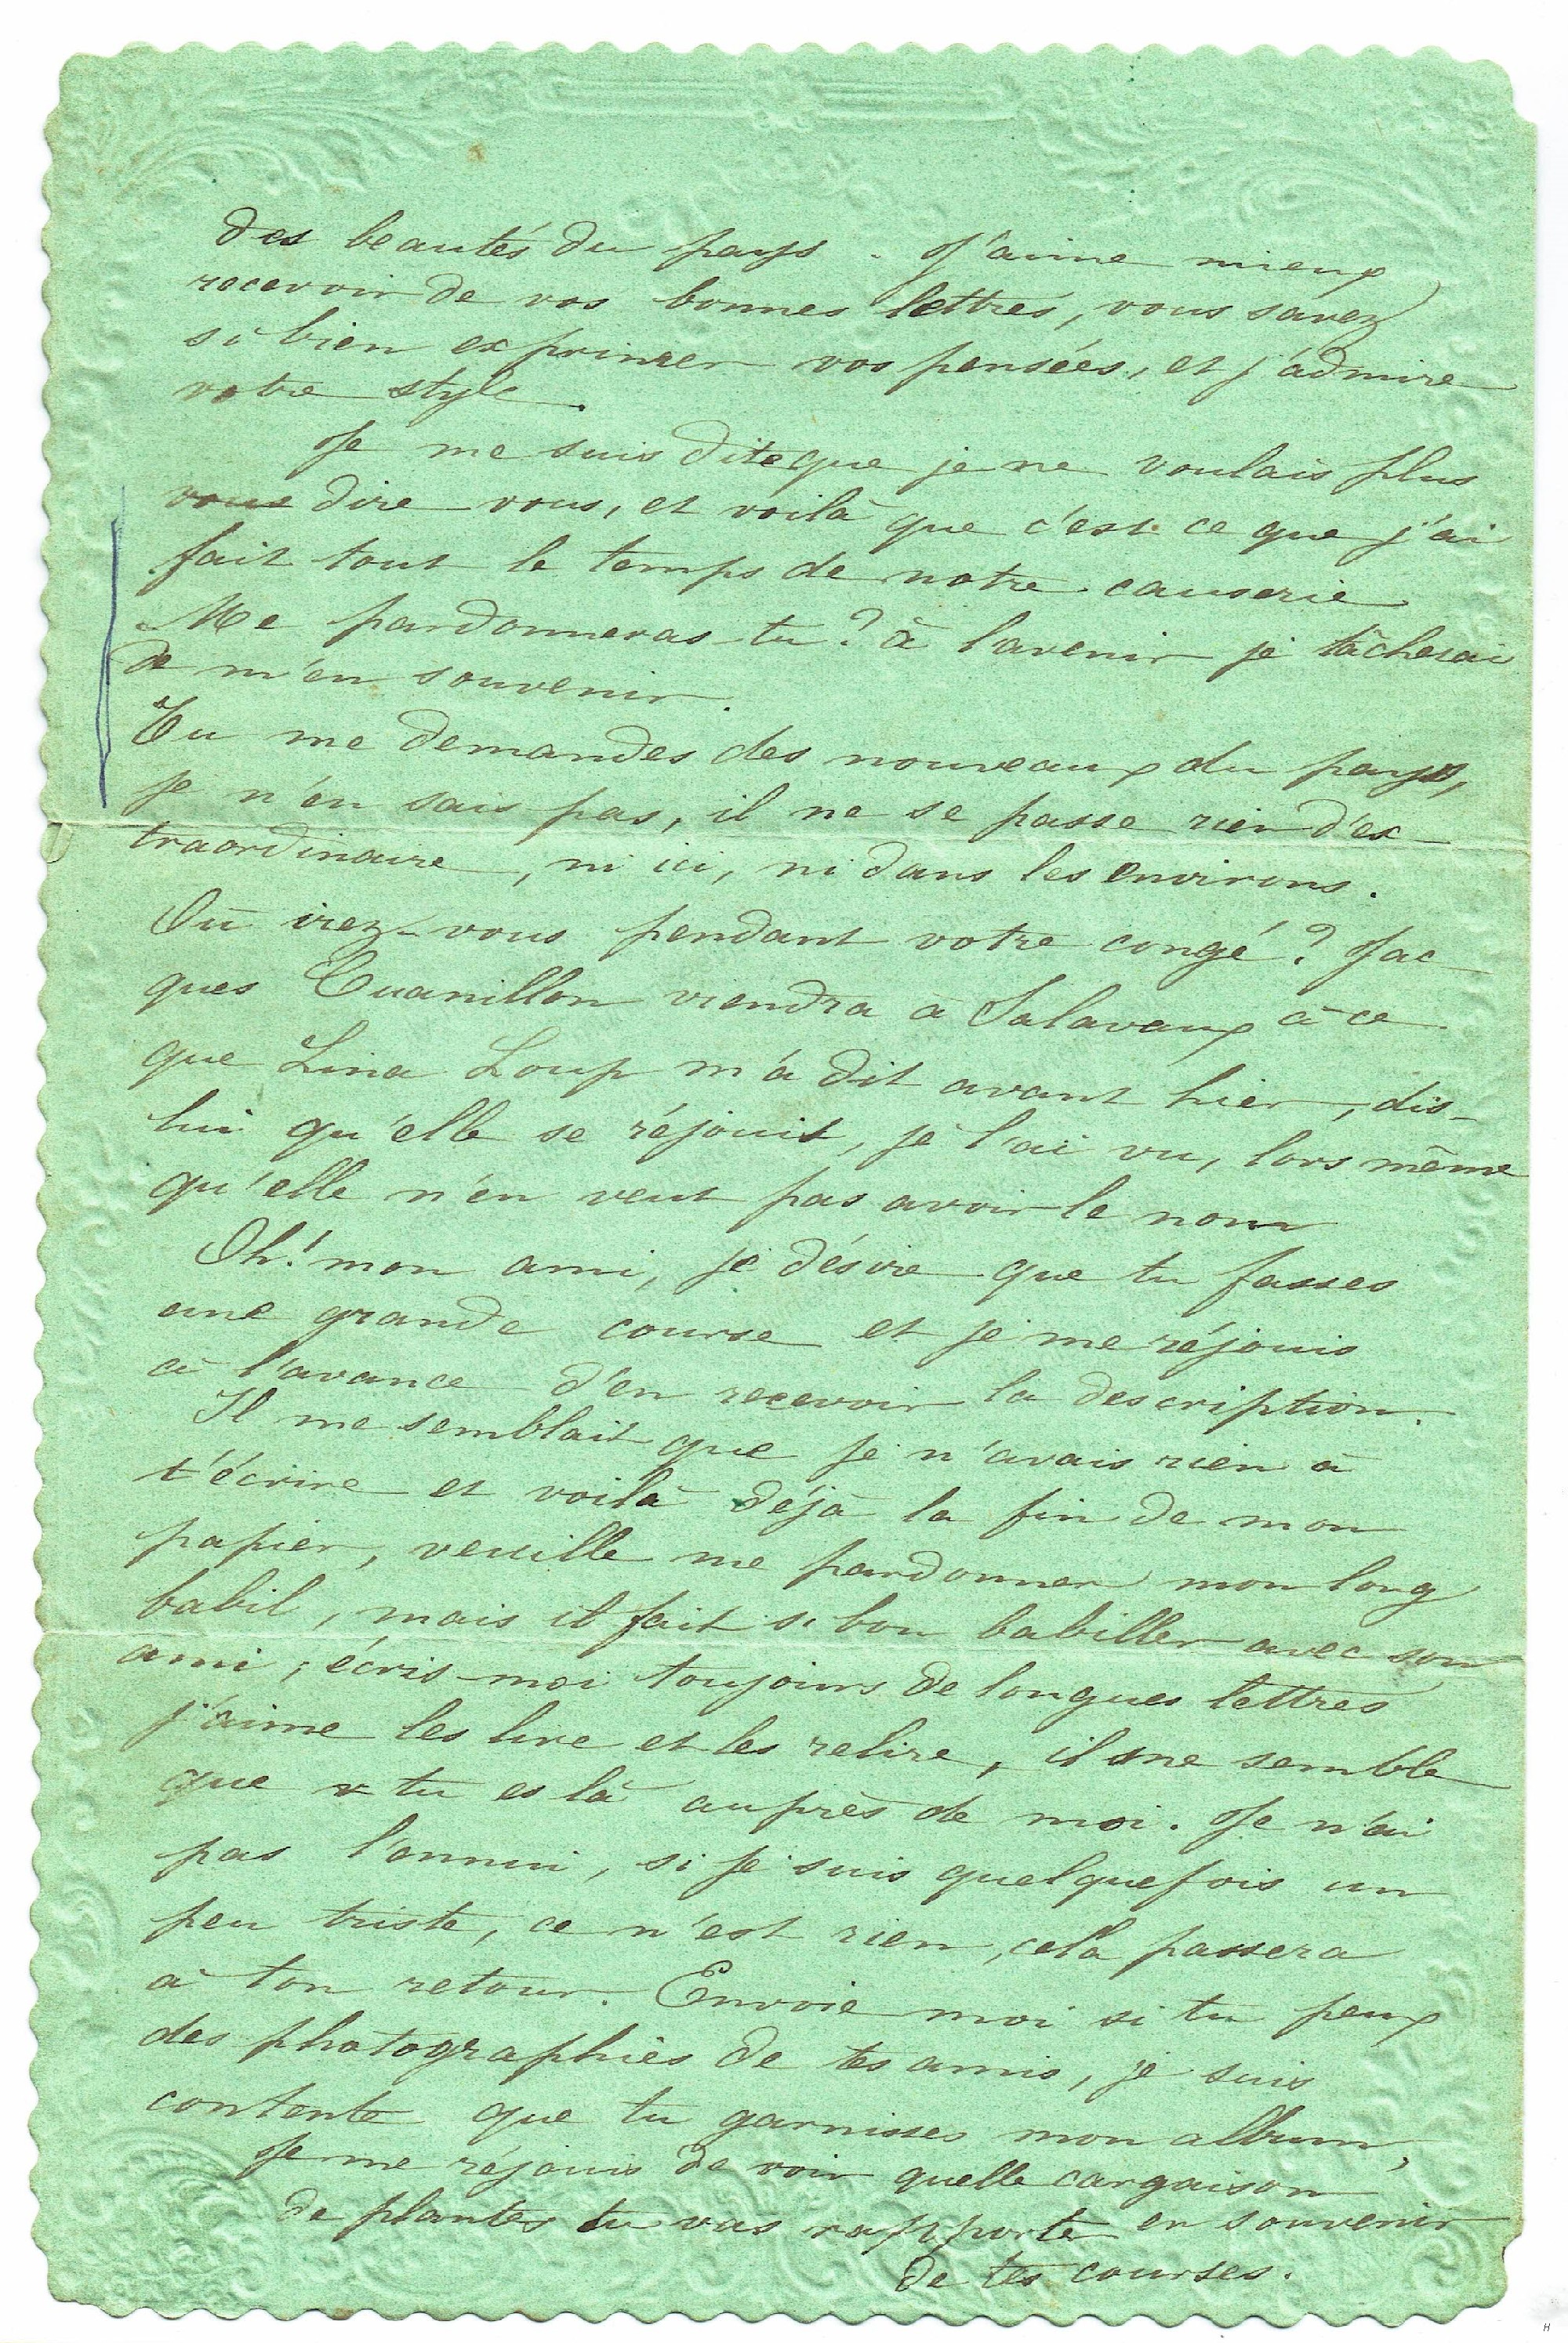 des beautés du pays. J'aime mieux
recevoir de vos bonnes lettres, vous savez
si bien exprimer vos pensées, et j'admire
votre style.
Je me suis dite que je ne voulais plus
vous dire vous, et voilà que c'est ce que j'ai
fait tout le temps de notre causerie
Me pardonneras tu? à l'avenir je tâcherai
de m'en souvenir.
Tu me demandes des nouveaux du pays,
je n'en sais pas, il ne se passe rien d'ex
traordinaire, ni ici, ni dans les environs.
Où irez-vous pendant votre congé? Jac
ques Tuanillon viendra à Salavaux à ce
que Lina Loup m'a dit avant hier, dis-
lui qu'elle se réjouit, je l'ai vu, lors même
qu'elle n'en veut pas avoir le nom
Oh! mon ami, je désire que tu fasses
une grande course et je me réjouis
à l'avance d'en recevoir la description.
Il me semblait que je n'avais rien à
t'écrire et voilà déjà la fin de mon
papier, veuille me pardonner mon long
babil, mais il fait si bon babiller avec son
ami, écris-moi toujours de longues lettres
j'aime les lire et les relire, il me semble
que tu es là auprès de moi. Je n'ai
pas l'ennui, si je suis quelquefois un
peu triste, ce n'est rien, cela passera
à ton retour. Envoie moi si tu peux
des photographies de tes amis, je suis
contente que tu garnisses mon album,
Je me réjouis de voir quelle cargaison
de plantes tu vas rapporte en souvenir
de tes courses.